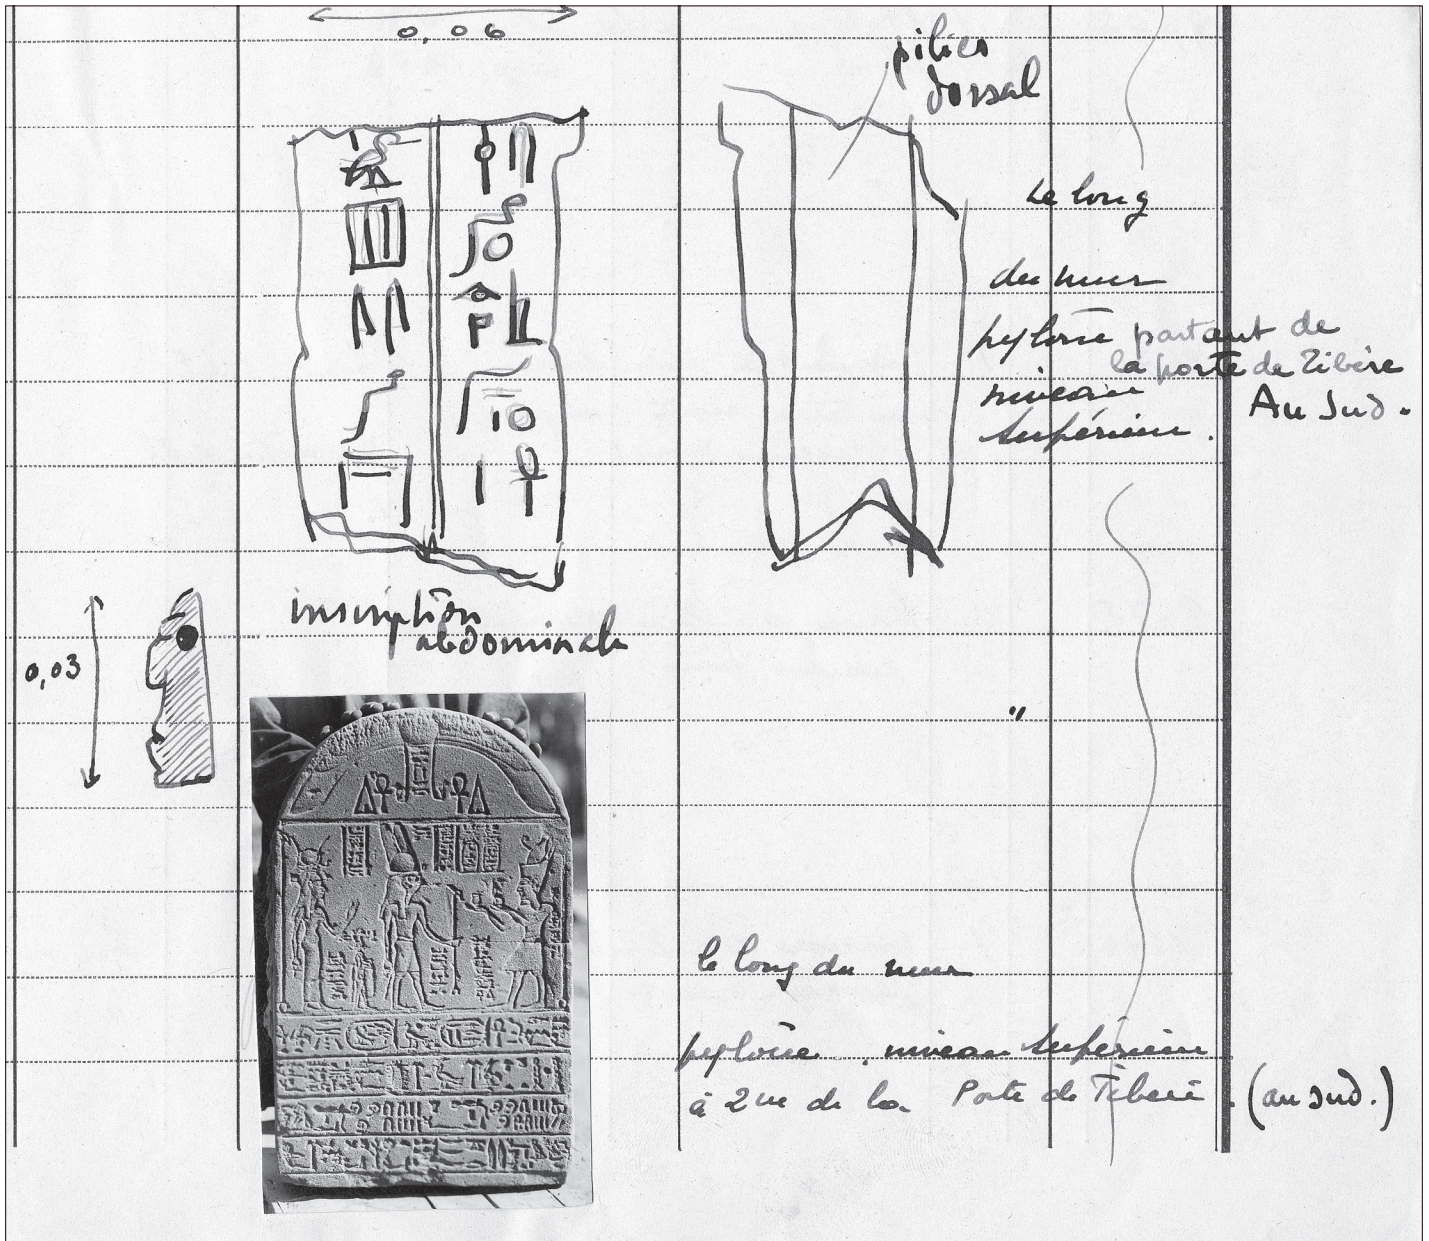 0,06
pilier
dorsal
le long
du mur
partant de
la porte de Tibère
niveau
Au Sud.
supérieur.
inscription
abdominale
0,03
"
le long du mur
niveau supérieur
à 2m de la Porte de Tibère. (au sud.)